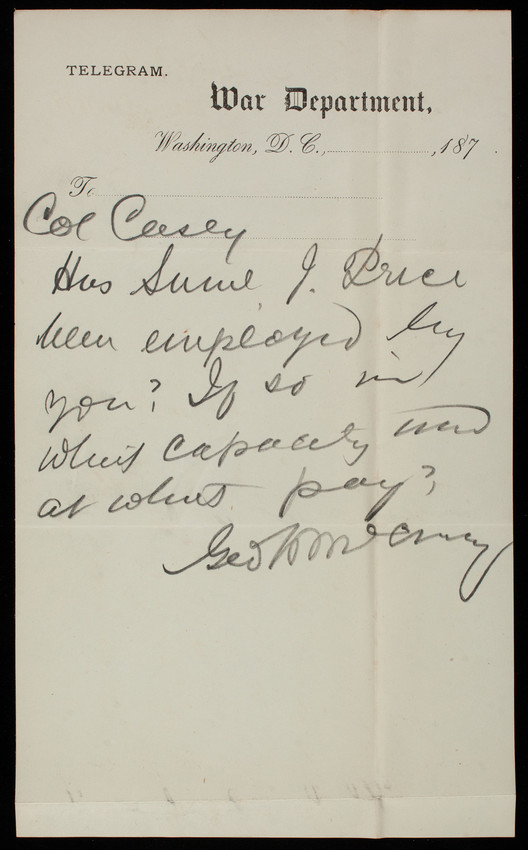 TELEGRAM.
War Department,
Washington, D. C., , 187 .
To
Col Casey
Has Saml J. Price
been employed by
you? If so in
what capacity and
at what pay?
Geo W McCrary